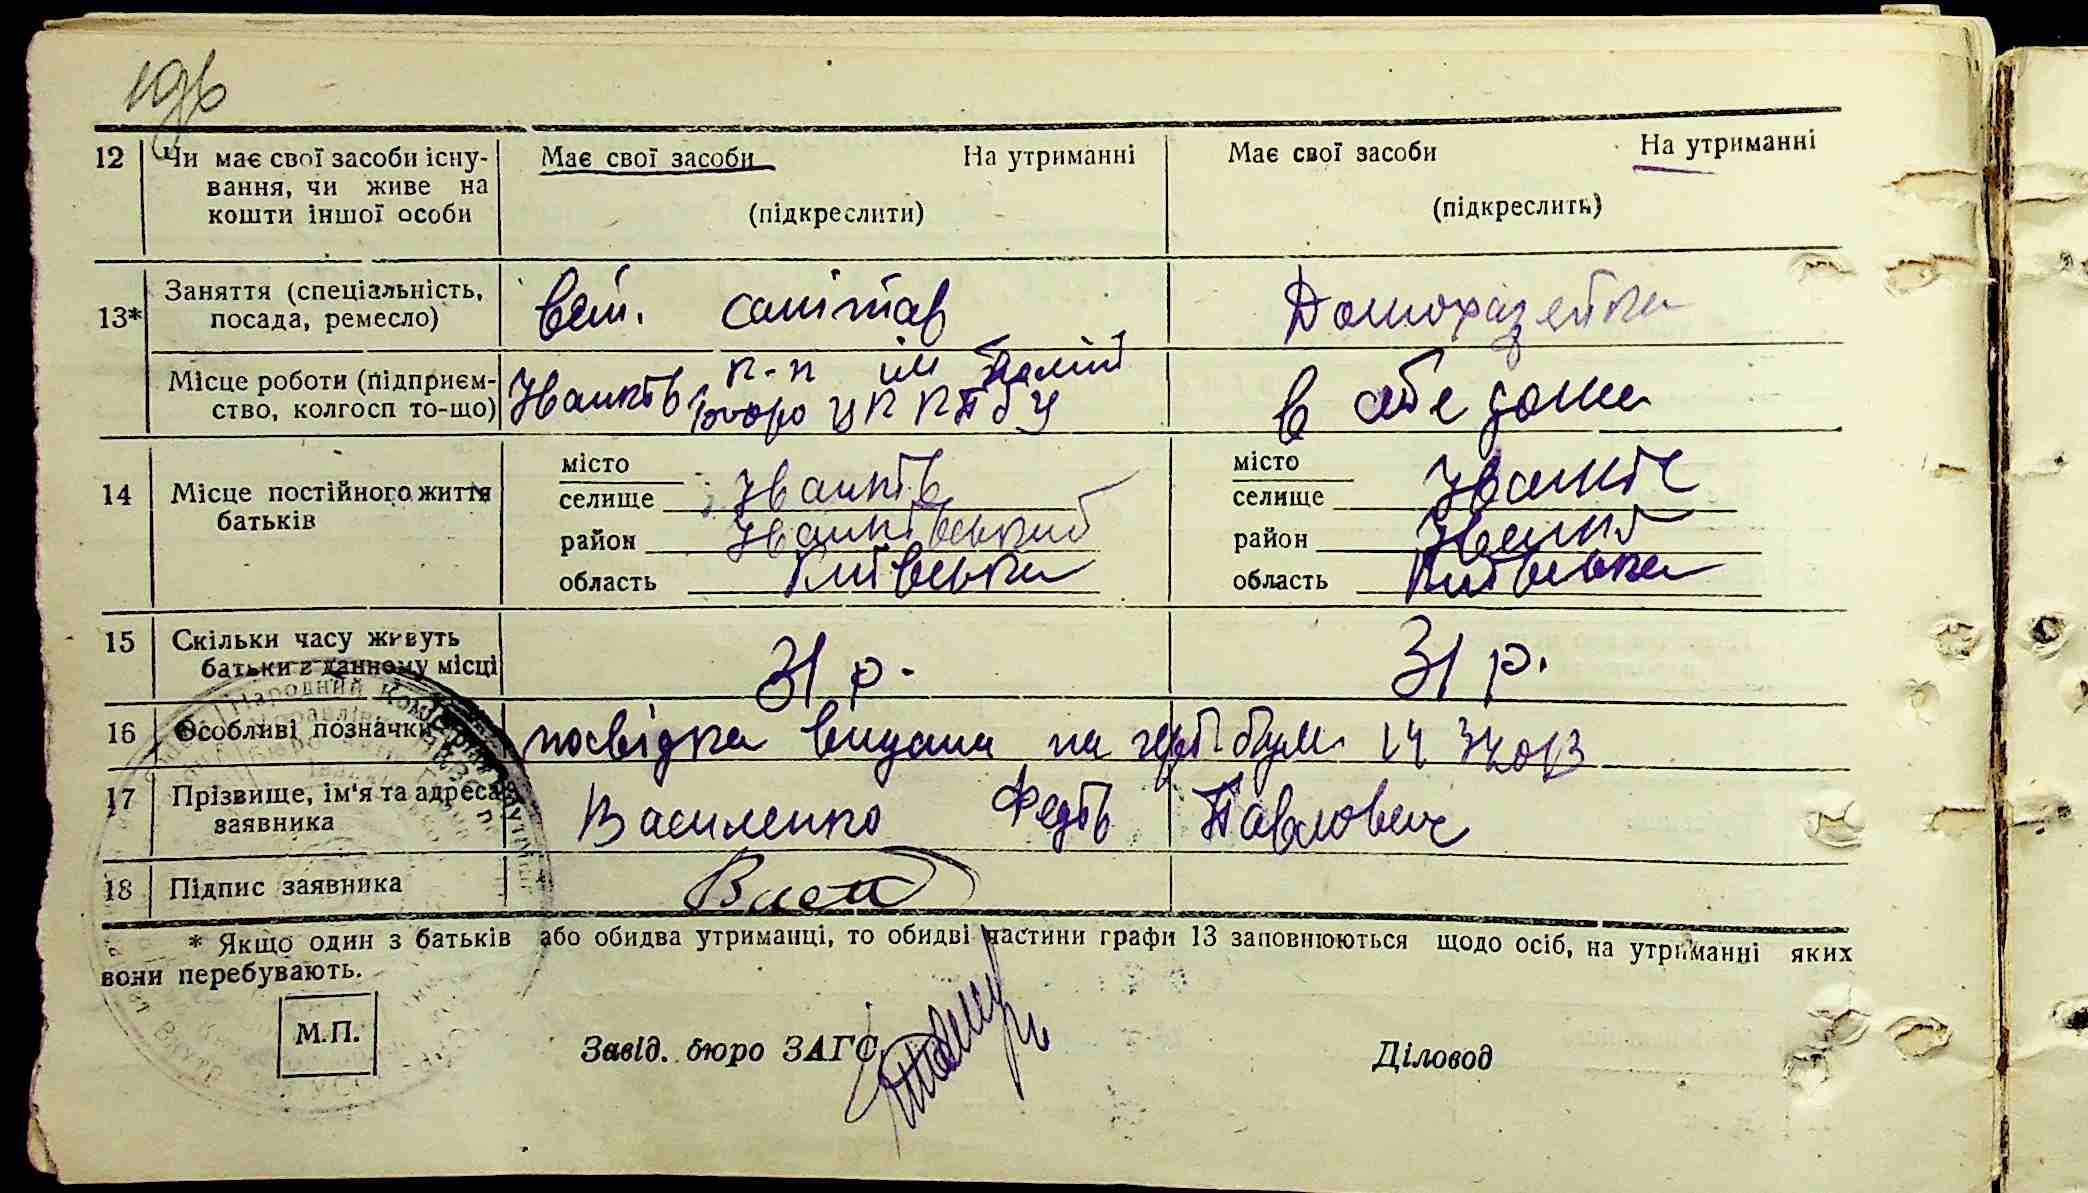 12 Чи має свої засоби існу- Має свої засоби На утриманні Має свої засоби На утриманні
вання, чи живе на
кошти іншої особи (підкреслити) (підкреслить)
13* Заняття (спеціальність, вет. санітар Домохазейка
посада, ремесло)
Місце роботи (підприєм- п-п ім
ство, колгосп то-що) Іванків бюро ЦК КПбУ в себе дома
місто місто
14 Місце постійного життя селище Іванків селище Іванків
батьків район Іванківський район Іванків
область Київська область Київська
15 Скільки часу живуть 31 р. 31 р.
батьки в данному місці
16 Особливі позначки посвідка видана на герб бум 14 34013
17 Прізвище, ім'я та адреса Василенко Федів Павлович
заявника
18 Підпис заявника Васи
* Якщо один з батьків або обидва утриманці, то обидві частини графи 13 заповнюються щодо осіб, на утриманні яких
вони перебувають.
М.П. Завід. бюро ЗАГС Діловод